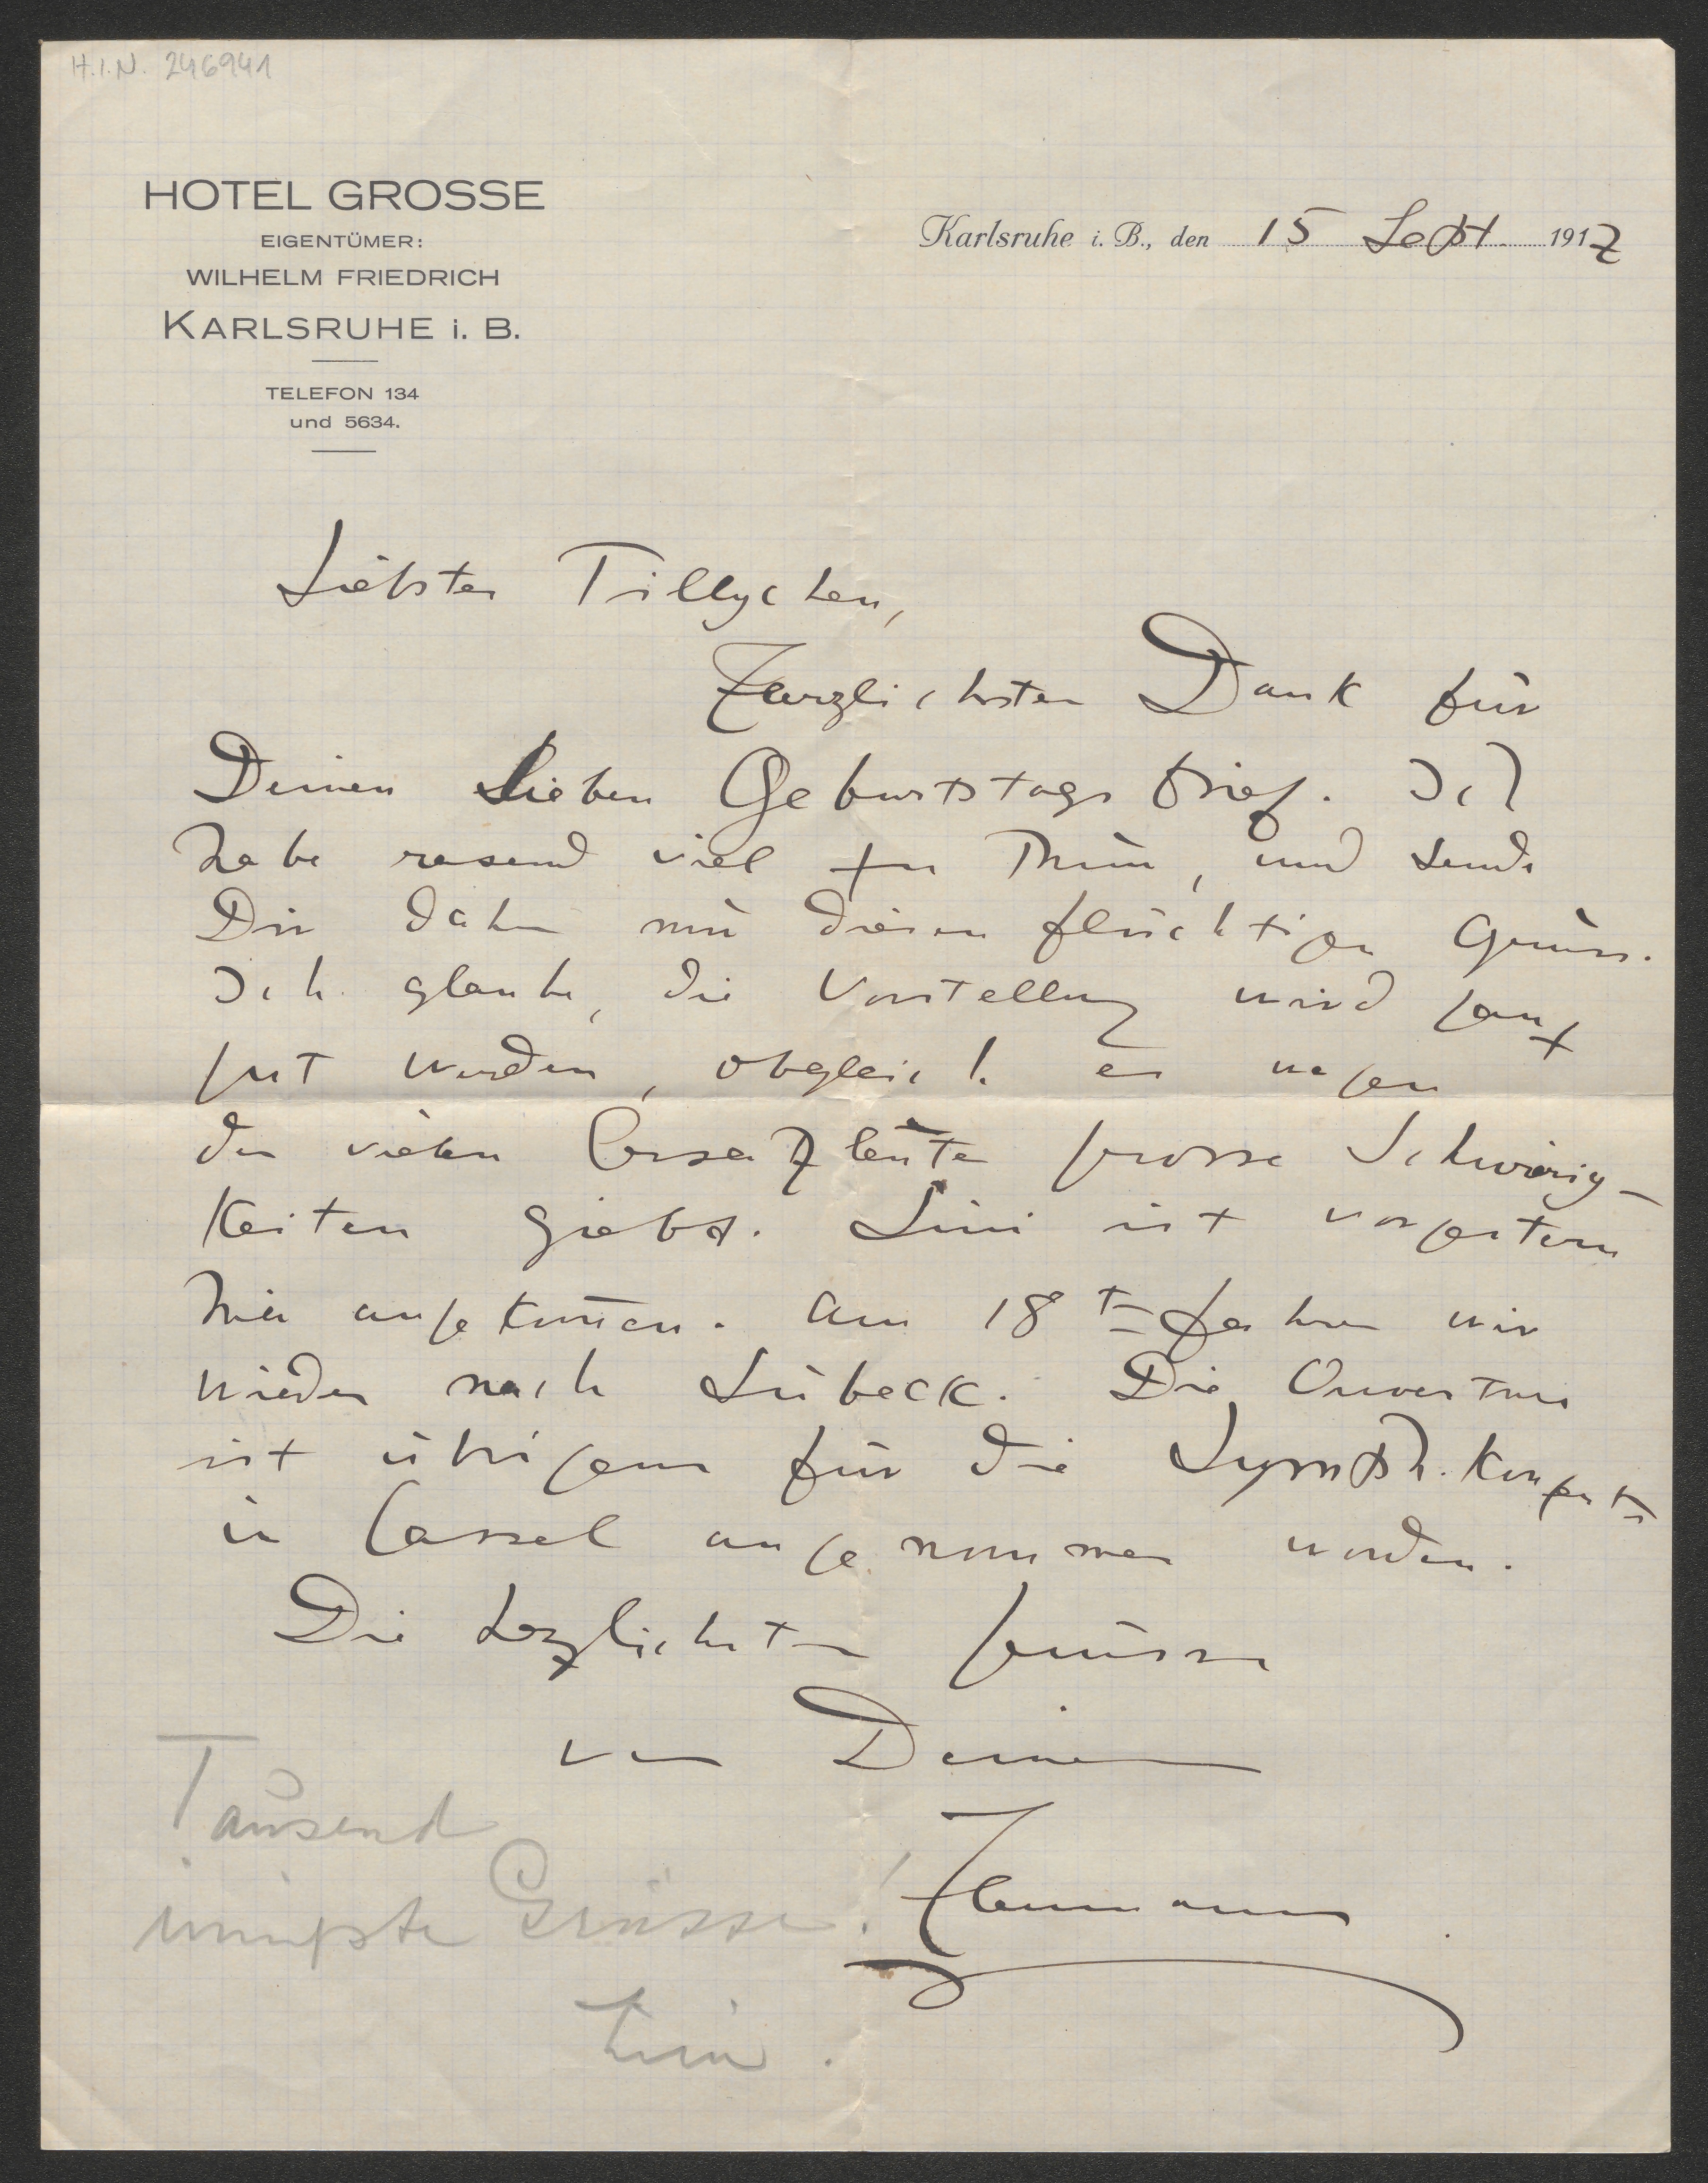 H.I.N. 246941
HOTEL GROSSE
EIGENTÜMER:
WILHELM FRIEDRICH
KARLSRUHE i. B.
TELEFON 134
und 5634.
Karlsruhe i. B., den 15 Sept. 1917
Liebster Tillychen,
Herzlichsten Dank für
Deinen Lieben Geburtstagsbrief. Ich
habe rasend viel zu Thun, und sende
Dir daher nur diesen flüchtigen Gruss.
Ich glaube, die Vorstellung wird ganz
gut werden, obgleich es wegen
der vielen Ersatzleute grosse Schwierig-
keiten giebt. Lini ist vorgestern
hier angekom̄en. Am 18ten fahren wir
wieder nach Lübeck. Die Ouverture
ist übrigens für die Symph. Konzerte
in Cassel angenommen worden.
Die herzlichsten Grüsse
von Deinem
Hermann
Tausend
innigste Grüsse!
Lini.